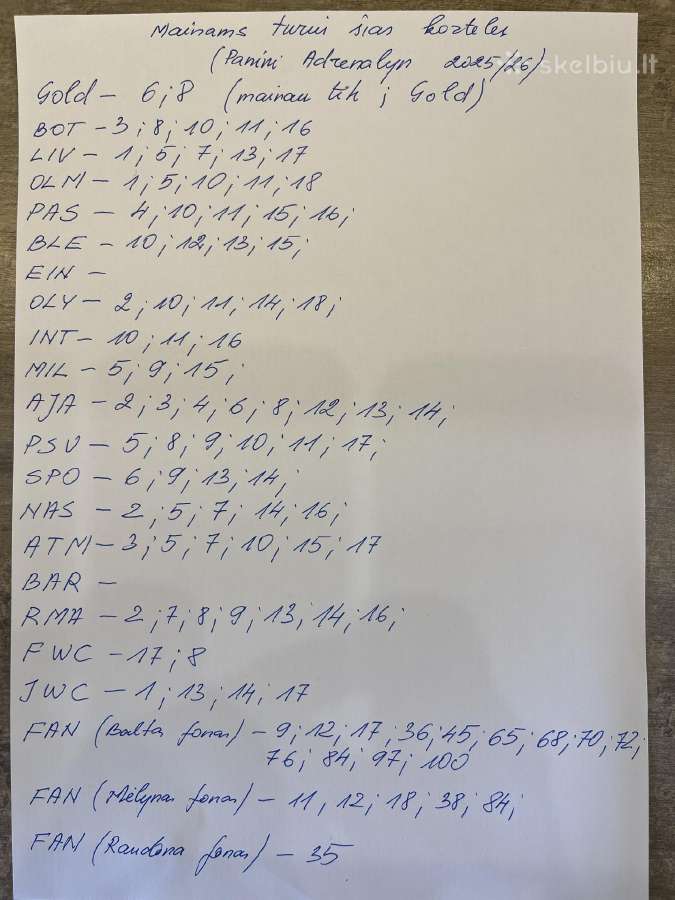 Mainams turiu šias korteles
(Panini Adrenalyn 2025/26)
skelbiu.lt
Gold - 6; 8 (mainau tik į Gold)
BOT - 3; 8; 10; 11; 16
LIV - 1; 5; 7; 13; 17
OLM - 1; 5; 10; 11; 18
PAS - 4; 10; 11; 15; 16;
BLE - 10; 12; 13; 15;
EIN -
OLY - 2; 10; 11; 14; 18;
INT - 10; 11; 16
MIL - 5; 9; 15;
AJA - 2; 3; 4; 6; 8; 12; 13; 14;
PSV - 5; 8; 9; 10; 11; 17;
SPO - 6; 9; 13; 14;
NAS - 2; 5; 7; 14; 16;
ATM - 3; 5; 7; 10; 15; 17
BAR -
RMA - 2; 7; 8; 9; 13; 14; 16;
FWC - 17; 8
JWC - 1; 13; 14; 17
FAN (Balta fonas) - 9; 12; 17; 36; 45; 65; 68; 70; 72;
76; 84; 97; 100
FAN (Mėlynas fonas) - 11, 12; 18; 38; 84;
FAN (Raudona fonas) - 35